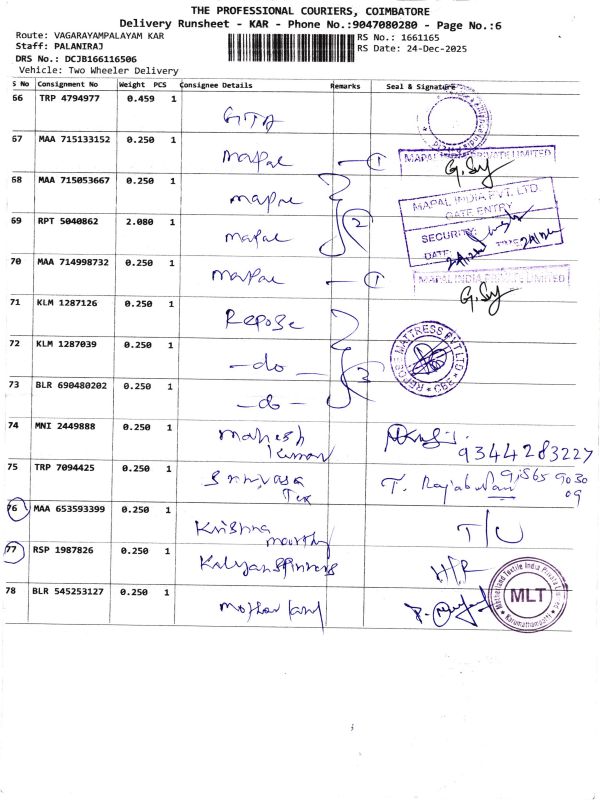 THE PROFESSIONAL COURIERS, COIMBATORE
Delivery Runsheet - KAR - Phone No.:9047080280 - Page No.:6
Route: VAGARAYAMPALAYAM KAR
RS No.: 1661165
Staff: PALANIRAJ
RS Date: 24-Dec-2025
DRS No.: DCJB166116506
Vehicle: Two Wheeler Delivery
S No Consignment No Weight PCS Consignee Details Remarks Seal & Signature
66 TRP 4794977 0.459 1
GITA
67 MAA 715133152 0.250 1
mapal 1
MAPAL INDIA PRIVATE LIMITED
G. Sy
68 MAA 715053667 0.250 1
mapal
MAPAL INDIA PVT. LTD.
GATE ENTRY
69 RPT 5040862 2.080 1
mapal 2
SECURITY:
DATE: TIME:
70 MAA 714998732 0.250 1
mapal 1
MAPAL INDIA PRIVATE LIMITED
G. Sy
71 KLM 1287126 0.250 1
Repose
72 KLM 1287039 0.250 1
-do- 3
REPOSE MATTRESS PVT LTD
CBE
73 BLR 690480202 0.250 1
-do-
74 MNI 2449888 0.250 1
mahesh
kumar
9344283227
75 TRP 7094425 0.250 1
Srinivasa
Tex
T.
76 MAA 653593399 0.250 1
Krishna
moorthy
T/C
77 RSP 1987826 0.250 1
Kalyan Spinners
H/R
78 BLR 545253127 0.250 1
P.
Motherland Textile India Private Limited
MLT
Karumathampatti